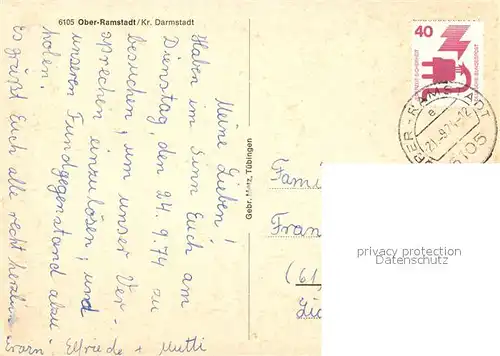 6105 Ober-Ramstadt/Kr. Darmstadt
Meine Lieben!
Haben im Sinn Euch am
Dienstag, den 24.9.74 zu
besuchen, um unser Ver-
sprechen einzulösen, und
unseren Fundgegenstand abzu
holen.
Es grüßt Euch alle recht herzlich
Elfriede + Mutti
Gebr. Metz, Tübingen
40
DEUTSCHE BUNDESPOST
OBER-RAMSTADT
e
21.-9.74-12
6105
Fami
Fran
(61
privacy protection
Datenschutz